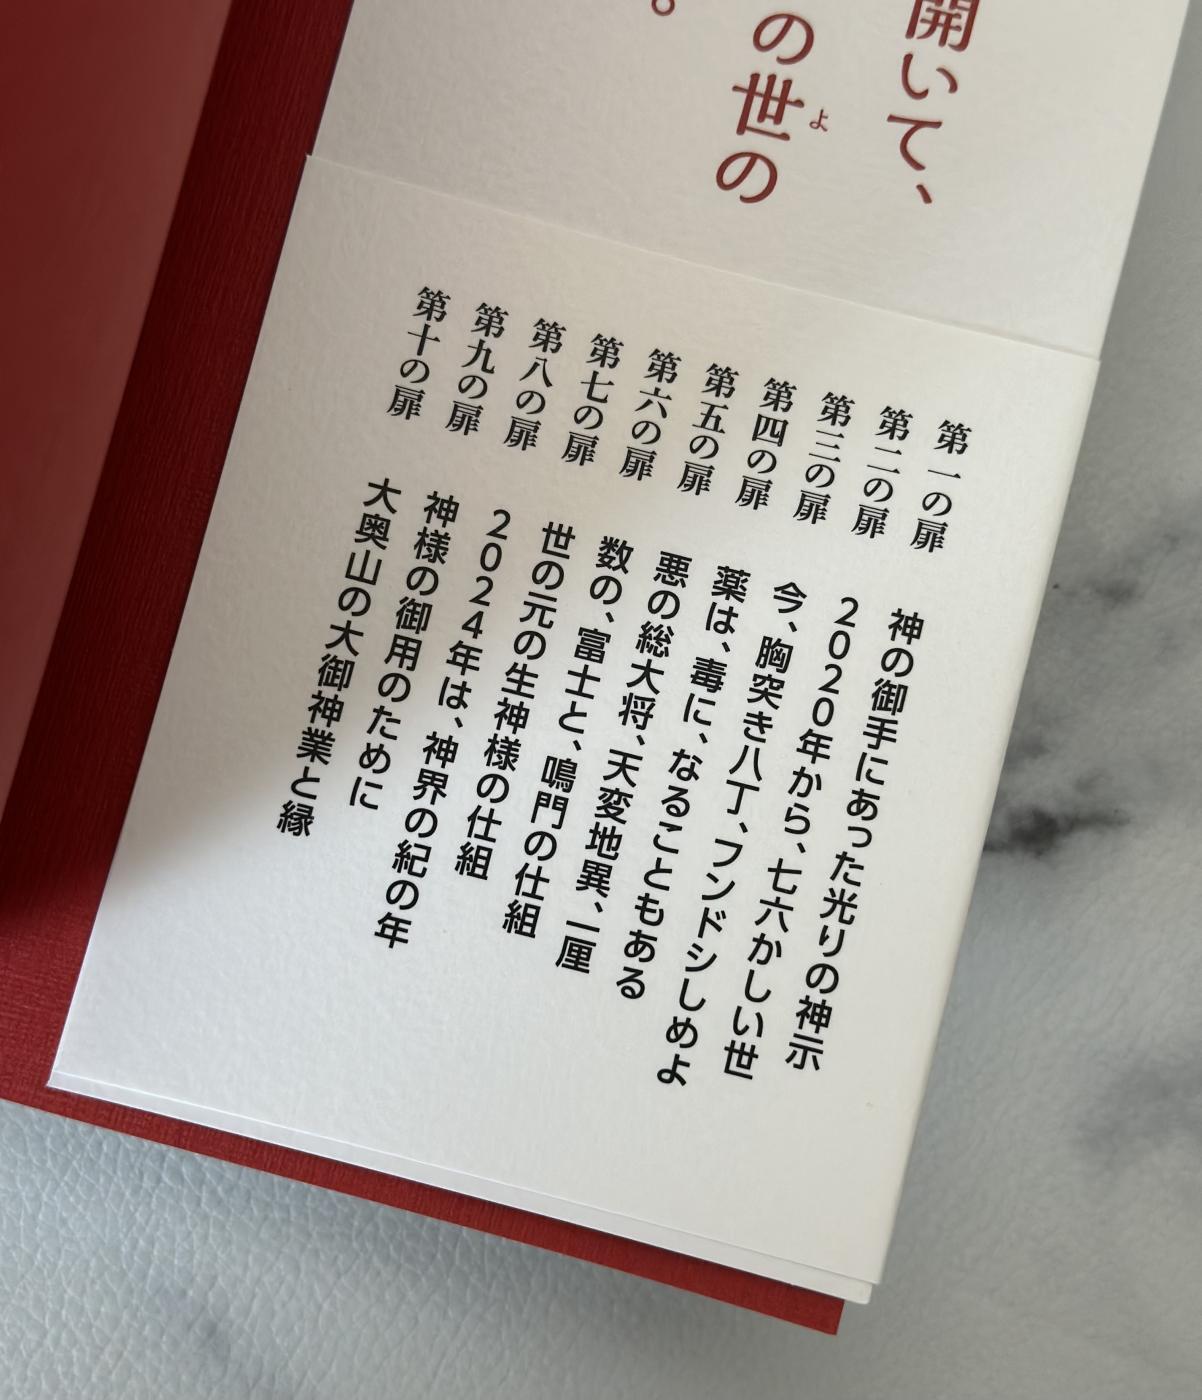 開いて、
の世の
よ
。
第一の扉 神の御手にあった光りの神示
第二の扉 2020年から、七六かしい世
第三の扉 今、胸突き八丁、フンドシしめよ
第四の扉 薬は、毒に、なることもある
第五の扉 悪の総大将、天変地異、一厘
第六の扉 数の、富士と、鳴門の仕組
第七の扉 世の元の生神様の仕組
第八の扉 2024年は、神界の紀の年
第九の扉 神様の御用のために
第十の扉 大奥山の大御神業と縁